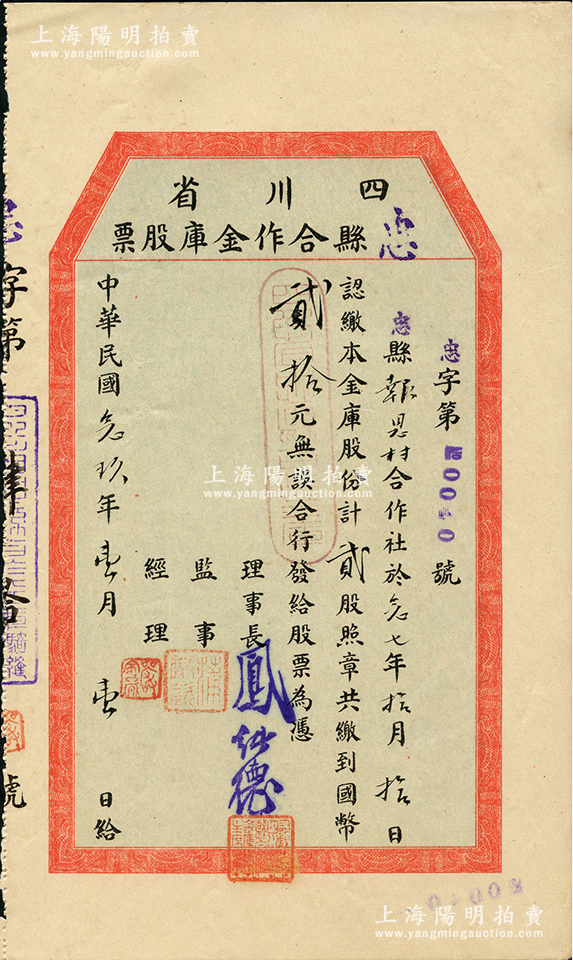 上海陽明拍賣
www.yangmingauction.com
四川省
忠縣合作金庫股票
忠字第00040號
忠縣報恩村合作社於念七年拾月拾日
認繳本金庫股份計貳股照章共繳到國幣
貳拾元無誤合行發給股票為憑
理事長
監事
經理
中華民國念玖年壹月壹日給
忠字第肆拾號
上海陽明拍賣
www.yangmingauction.com
上海陽明拍賣
www.yangmingauction.com